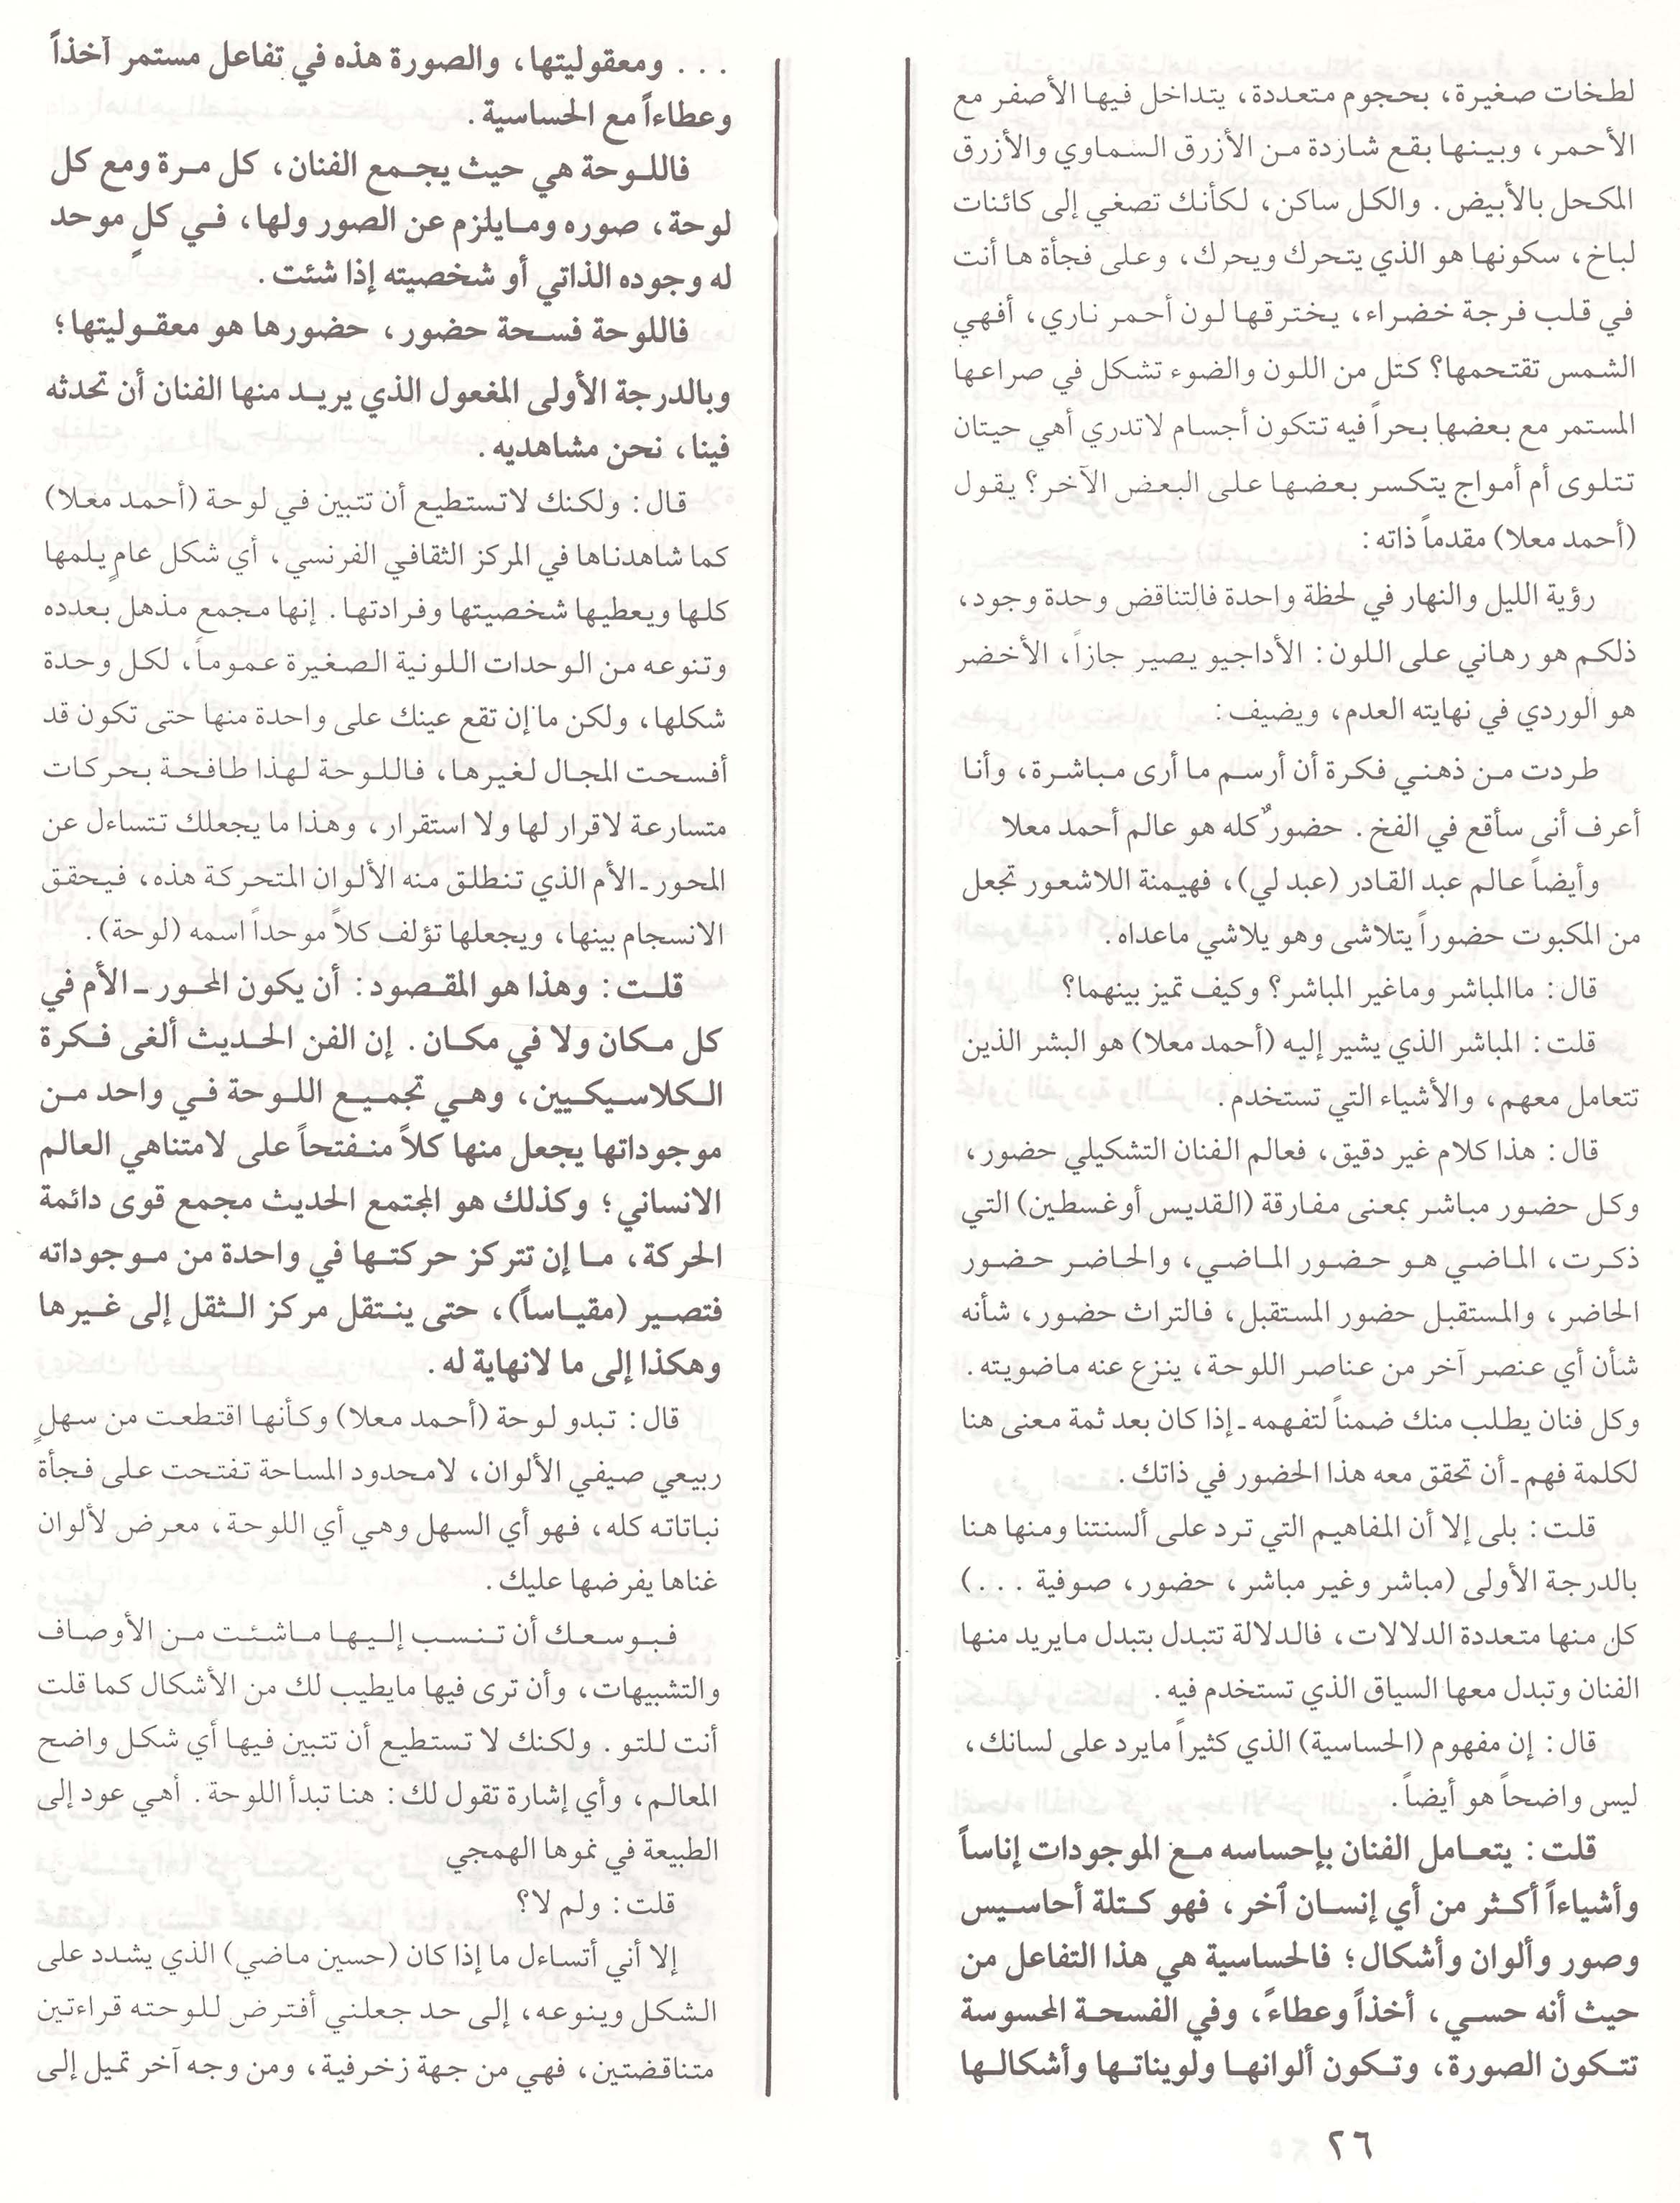 لطخات صغيرة، بحجوم متعددة، يتداخل فيها الأصفر مع
الأحمر، وبينها بقع شازدة من الأزرق السماوي والأزرق
المكحل بالأبيض. والكل ساكن، لكأنك تصغي إلى كائنات
لباخ، سكونها هو الذي يتحرك ويحرك، وعلى فجأة ها أنت
في قلب فرجة خضراء، يخترقها لون أحمر ناري، أفهي
الشمس تقتحمها؟ كتل من اللون والضوء تشكل في صراعها
المستمر مع بعضها بحراً فيه تتكون أجسام لاتدري أهي حيتان
تتلوى أم أمواج يتكسر بعضها على البعض الآخر؟ يقول
(أحمد معلا) مقدماً ذاته:
رؤية الليل والنهار في لحظة واحدة فالتناقض وحدة وجود،
ذلكم هو رهاني على اللون: الأداجيو يصير جازاً، الأخضر
هو الوردي في نهايته العدم، ويضيف:
طردت من ذهني فكرة أن أرسم ما أرى مباشرة، وأنا
أعرف أنى سأقع في الفخ. حضورٌ كله هو عالم أحمد معلا
وأيضاً عالم عبد القادر (عبد لي)، فهيمنة اللاشعور تجعل
من المكبوت حضوراً يتلاشى وهو يلاشي ماعداه.
قال: ماالمباشر وماغير المباشر؟ وكيف تميز بينهما؟
قلت: المباشر الذي يشير إليه (أحمد معلا) هو البشر الذين
تتعامل معهم، والأشياء التي تستخدم.
قال: هذا كلام غير دقيق، فعالم الفنان التشكيلي حضور،
وكل حضور مباشر بمعنى مفارقة (القديس أوغسطين) التي
ذكرت، الماضي هو حضور الماضي، والحاضر حضور
الحاضر، والمستقبل حضور المستقبل، فالتراث حضور، شأنه
شأن أي عنصر آخر من عناصر اللوحة، ينزع عنه ماضويته.
وكل فنان يطلب منك ضمناً لتفهمه ـ إذا كان بعد ثمة معنى هنا
لكلمة فهم ـ أن تحقق معه هذا الحضور في ذاتك.
قلت: بلى إلا أن المفاهيم التي ترد على ألسنتنا ومنها هنا
بالدرجة الأولى (مباشر وغير مباشر، حضور، صوفية ...)
كل منها متعددة الدلالات، فالدلالة تتبدل بتبدل مايريد منها
الفنان وتبدل معها السياق الذي تستخدم فيه.
قال: إن مفهوم (الحساسية) الذي كثيراً مايرد على لسانك،
ليس واضحاً هو أيضاً.
قلت: يتعامل الفنان بإحساسه مع الموجودات إناساً
وأشياءاً أكثر من أي إنسان آخر، فهو كتلة أحاسيس
وصور وألوان وأشكال؛ فالحساسية هي هذا التفاعل من
حيث أنه حسي، أخذاً وعطاءً، وفي الفسحة المحسوسة
تتكون الصورة، وتكون ألوانها ولويناتها وأشكالها
... ومعقوليتها، والصورة هذه في تفاعل مستمر آخذاً
وعطاءاً مع الحساسية.
فاللوحة هي حيث يجمع الفنان، كل مرة ومع كل
لوحة، صوره ومايلزم عن الصور ولها، في كلٍ موحد
له وجوده الذاتي أو شخصيته إذا شئت.
فاللوحة فسحة حضور، حضورها هو معقوليتها؛
وبالدرجة الأولى المغعول الذي يريد منها الفنان أن تحدثه
فينا، نحن مشاهديه.
قال: ولكنك لاتستطيع أن تتبين في لوحة (أحمد معلا)
كما شاهدناها في المركز الثقافي الفرنسي، أي شكل عامٍ يلمها
كلها ويعطيها شخصيتها وفرادتها. إنها مجمع مذهل بعدده
وتنوعه من الوحدات اللونية الصغيرة عموماً، لكل وحدة
شكلها، ولكن ما إن تقع عينك على واحدة منها حتى تكون قد
أفسحت المجال لغيرها، فاللوحة لهذا طافحة بحركات
متسارعة لاقرار لها ولا استقرار، وهذا ما يجعلك تتساءل عن
المحور ـ الأم الذي تنطلق منه الألوان المتحركة هذه، فيحقق
الانسجام بينها، ويجعلها تؤلف كلاً موحداً اسمه (لوحة).
قلت: وهذا هو المقصود: أن يكون المحور ـ الأم في
كل مكان ولا في مكان. إن الفن الحديث ألغى فكرة
الكلاسيكيين، وهي تجميع اللوحة في واحد من
موجوداتها يجعل منها كلاً منفتحاً على لامتناهي العالم
الانساني؛ وكذلك هو المجتمع الحديث مجمع قوى دائمة
الحركة، ما إن تتركز حركتها في واحدة من موجوداته
فتصير (مقياساً)، حتى ينتقل مركز الثقل إلى غيرها
وهكذا إلى ما لانهاية له.
قال: تبدو لوحة (أحمد معلا) وكأنها اقتطعت من سهلٍ
ربيعي صيفي الألوان، لامحدود المساحة تفتحت على فجأة
نباتاته كله، فهو أي السهل وهي أي اللوحة، معرض لألوان
غناها يفرضها عليك.
فبوسعك أن تنسب إليها ماشئت من الأوصاف
والتشبيهات، وأن ترى فيها مايطيب لك من الأشكال كما قلت
أنت للتو. ولكنك لا تستطيع أن تتبين فيها أي شكل واضح
المعالم، وأي إشارة تقول لك: هنا تبدأ اللوحة. أهي عود إلى
الطبيعة في نموها الهمجي
قلت: ولم لا؟
إلا أني أتساءل ما إذا كان (حسين ماضي) الذي يشدد على
الشكل وينوعه، إلى حد جعلني أفترض للوحته قراءتين
متناقضتين، فهي من جهة زخرفية، ومن وجه آخر تميل إلى
٢٦